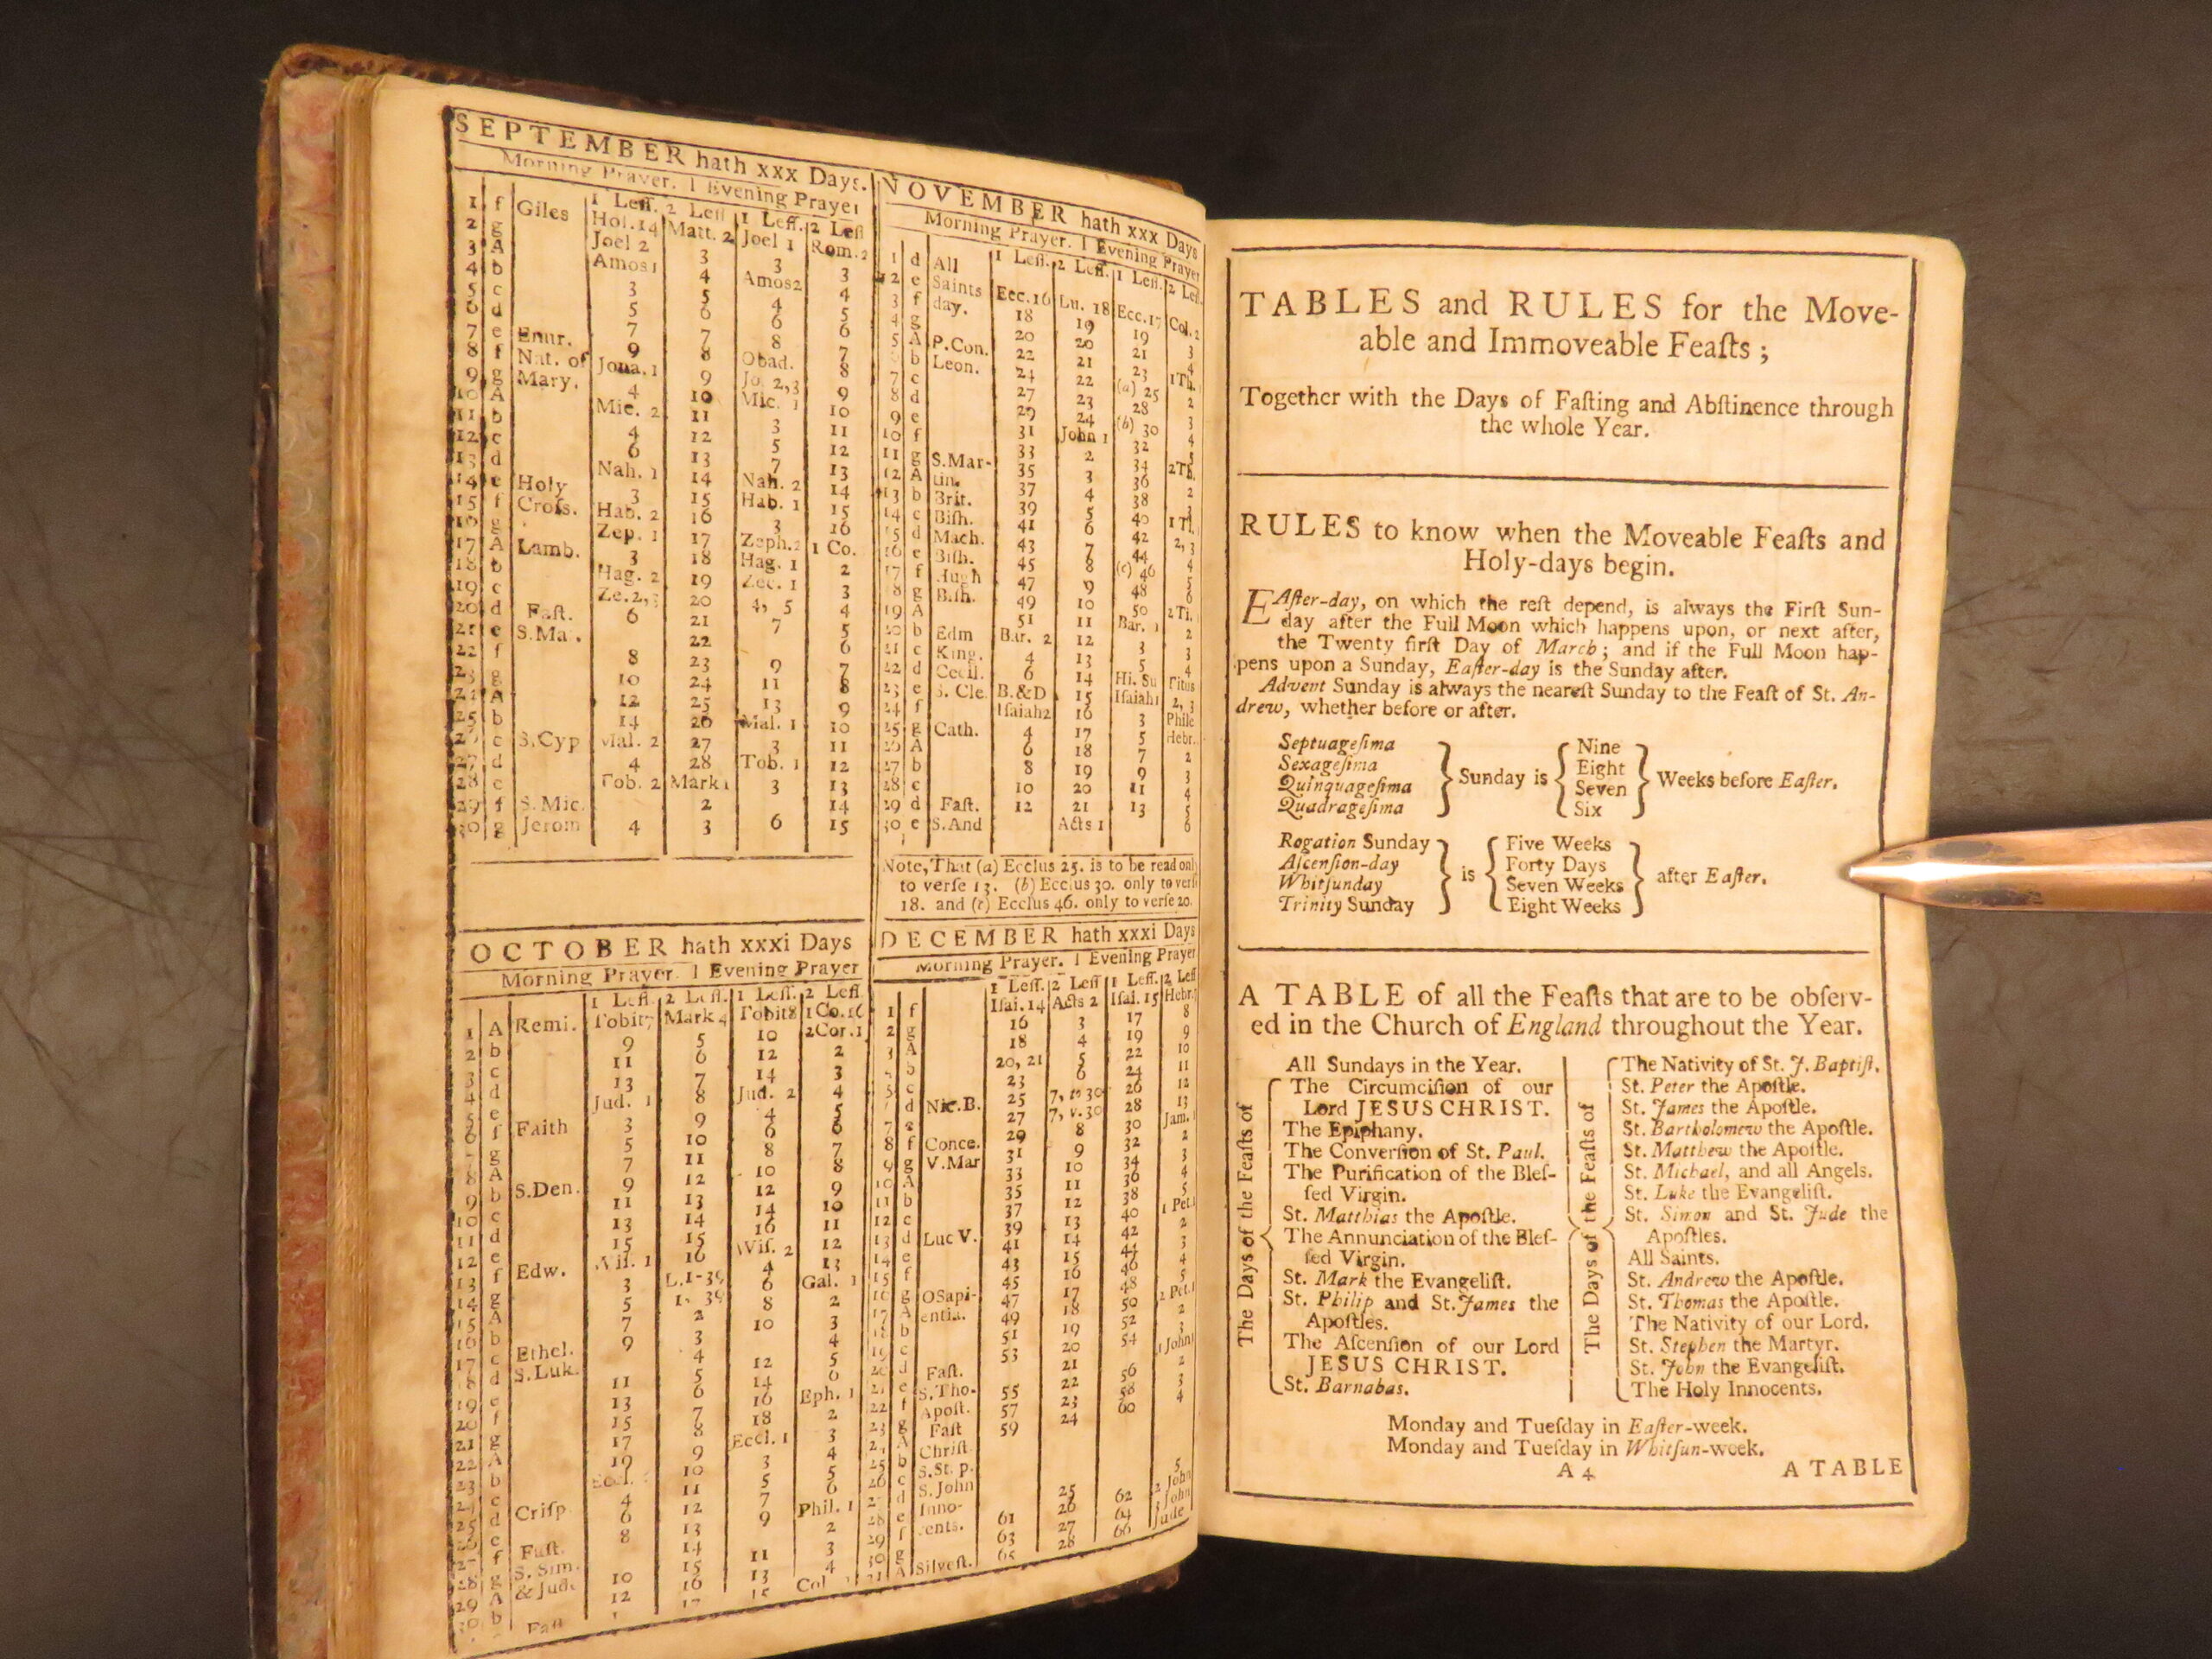 SEPTEMBER hath xxx Days.
Morning Prayer. | Evening Prayer
1 Leſſ. 2 Leſſ 1 Leſſ. 2 Leſſ
1 f Giles Hoſ.14 Matt. 2 Joel 1 Rom. 2
2 g Joel 2 3 3 3
3 A Amos1 4 Amos2 4
4 b 3 5 4 5
5 c 5 6 6 6
6 d 7 7 8 7
7 e Enur. 9 8 Obad. 8
8 f Nat. of Jona.1 9 Jo. 2,3 9
9 g Mary. 4 10 Mic. 1 10
10 A Mic. 2 11 3 11
11 b 4 12 5 12
12 c 6 13 7 13
13 d Nah. 1 14 Nah. 2 14
14 e Holy 3 15 Hab. 1 15
15 f Croſs. Hab. 2 16 3 16
16 g Zep. 1 17 Zeph.2 1 Co.
17 A Lamb. 3 18 Hag. 1 2
18 b Hag. 2 19 Zec. 1 3
19 c Ze.2,3 20 4, 5 4
20 d Faſt. 6 21 7 5
21 e S.Ma. 22 6
22 f 8 23 9 7
23 g 10 24 11 8
24 A 12 25 13 9
25 b 14 26 Mal. 1 10
26 c S.Cyp Mal. 2 27 3 11
27 d 4 28 Tob. 1 12
28 e Tob. 2 Mark1 3 13
29 f S. Mic. 2 14
30 g Jerom 4 3 6 15
OCTOBER hath xxxi Days
Morning Prayer. | Evening Prayer
1 Leſſ. 2 Leſſ. 1 Leſſ. 2 Leſſ
1 A Remi. Tobit7 Mark 4 Tobit8 1 Co.16
2 b 9 5 10 2Cor.1
3 c 11 6 12 2
4 d 13 7 14 3
5 e Jud. 1 8 Jud. 2 4
6 f Faith 3 9 4 5
7 g 5 10 6 6
8 A 7 11 8 7
9 b S.Den. 9 12 10 8
10 c 11 13 12 9
11 d 13 14 14 10
12 e 15 15 16 11
13 f Edw. Wiſ. 1 16 Wiſ. 2 12
14 g 3 L.1-39 4 13
15 A 5 1. 39 6 Gal. 1
16 b 7 2 8 2
17 c Ethel. 9 3 10 3
18 d S.Luk. 4 4
19 e 11 5 12 5
20 f 13 6 14 6
21 g 15 7 16 Eph. 1
22 A 17 8 18 2
23 b 19 9 Eccl. 1 3
24 c 10 3 4
25 d Criſp. 4 11 5 5
26 e 6 12 7 6
27 f Faſt. 8 13 9 Phil. 1
28 g S. Sim. 14 2
29 A & Jude 10 15 11 3
30 b 12 16 13 4
Faſt 17 15 Col
NOVEMBER hath xxx Days
Morning Prayer. | Evening Prayer
1 Leſſ. 2 Leſſ. 1 Leſſ. 2 Leſ.
1 d All
2 e Saints Ecc.16 Lu. 18 Ecc.17 Col. 2
3 f day. 18 19 19 3
4 g 20 20 21 4
5 A P.Con. 22 21 23 1Th.
6 b Leon. 24 22 (a) 25 2
7 c 27 23 28 3
8 d 29 24 (b) 30 4
9 e 31 John 1 32 5
10 f 33 2 34 2Th.
11 g S.Mar- 35 3 36 2
12 A tin. 37 4 38 3
13 b Brit. 39 5 40 1 Ti.
14 c Biſh. 41 6 42 2, 3
15 d Mach. 43 7 44 4
16 e Biſh. 45 8 (c) 46 5
17 f Hugh 47 9 48 6
18 g Biſh. 49 10 50 2 Ti.
19 A 51 11 Bar. 1 2
20 b Edm Bar. 2 12 3 3
21 c King. 4 13 5 4
22 d Cecil. 6 14 Hi. Su Titus
23 e S. Cle. B.&D 15 Iſaiah1 2, 3
24 f Iſaiah2 16 3 Phile
25 g Cath. 4 17 5 Hebr.
26 A 6 18 7 2
27 b 8 19 9 3
28 c 10 20 11 4
29 d Faſt. 12 21 13 5
30 e S.And Acts 1 6
Note, That (a) Ecclus 25. is to be read only
to verſe 13. (b) Ecclus 30. only to verſe
18. and (c) Ecclus 46. only to verſe 20.
DECEMBER hath xxxi Days
Morning Prayer. | Evening Prayer
1 Leſſ. 2 Leſſ 1 Leſſ. 2 Leſſ
1 f Iſai. 14 Acts 2 Iſai. 15 Hebr.7
2 g 16 3 17 8
3 A 18 4 19 9
4 b 20, 21 5 22 10
5 c 23 6 24 11
6 d Nic.B. 25 7, to 30 26 12
7 e 27 7, v.30 28 13
8 f Conce. 29 8 30 Jam. 1
9 g V.Mar 31 9 32 2
10 A 33 10 34 3
11 b 35 11 36 4
12 c 37 12 38 5
13 d Luc V. 39 13 40 1 Pet.1
14 e 41 14 42 2
15 f 43 15 44 3
16 g OSapi- 45 16 46 4
17 A entia. 47 17 48 5
18 b 49 18 50 2 Pet.1
19 c 51 19 52 2
20 d Faſt. 53 20 54 3
21 e S.Tho- 21 1 John1
22 f Apoſt. 55 22 56 2
23 g Faſt 57 23 58 3
24 A 59 24 60 4
25 b Chriſt.
26 c S.St. p.
27 d S.John 5
28 e Inno- 25 2 John
29 f cents. 61 26 62 3 John
30 g 63 27 64 Jude
31 A Silveſt. 65 28 66
TABLES and RULES for the Move-
able and Immoveable Feaſts ;
Together with the Days of Faſting and Abſtinence through
the whole Year.
RULES to know when the Moveable Feaſts and
Holy-days begin.
EAſter-day, on which the reſt depend, is always the Firſt Sun-
day after the Full Moon which happens upon, or next after,
the Twenty firſt Day of March ; and if the Full Moon hap-
pens upon a Sunday, Eaſter-day is the Sunday after.
Advent Sunday is always the neareſt Sunday to the Feaſt of St. An-
drew, whether before or after.
Septuageſima
Sexageſima
Quinquageſima
Quadrageſima
Sunday is
Nine
Eight
Seven
Six
Weeks before Eaſter.
Rogation Sunday
Aſcenſion-day
Whitſunday
Trinity Sunday
is
Five Weeks
Forty Days
Seven Weeks
Eight Weeks
after Eaſter.
A TABLE of all the Feaſts that are to be obſerv-
ed in the Church of England throughout the Year.
The Days of the Feaſts of
All Sundays in the Year.
The Circumciſion of our
Lord JESUS CHRIST.
The Epiphany.
The Converſion of St. Paul.
The Purification of the Bleſ-
ſed Virgin.
St. Matthias the Apoſtle.
The Annunciation of the Bleſ-
ſed Virgin.
St. Mark the Evangeliſt.
St. Philip and St. James the
Apoſtles.
The Aſcenſion of our Lord
JESUS CHRIST.
St. Barnabas.
The Days of the Feaſts of
The Nativity of St. J. Baptiſt.
St. Peter the Apoſtle.
St. James the Apoſtle.
St. Bartholomew the Apoſtle.
St. Matthew the Apoſtle.
St. Michael, and all Angels.
St. Luke the Evangeliſt.
St. Simon and St. Jude the
Apoſtles.
All Saints.
St. Andrew the Apoſtle.
St. Thomas the Apoſtle.
The Nativity of our Lord.
St. Stephen the Martyr.
St. John the Evangeliſt.
The Holy Innocents.
Monday and Tueſday in Eaſter-week.
Monday and Tueſday in Whitſun-week.
A 4 A TABLE